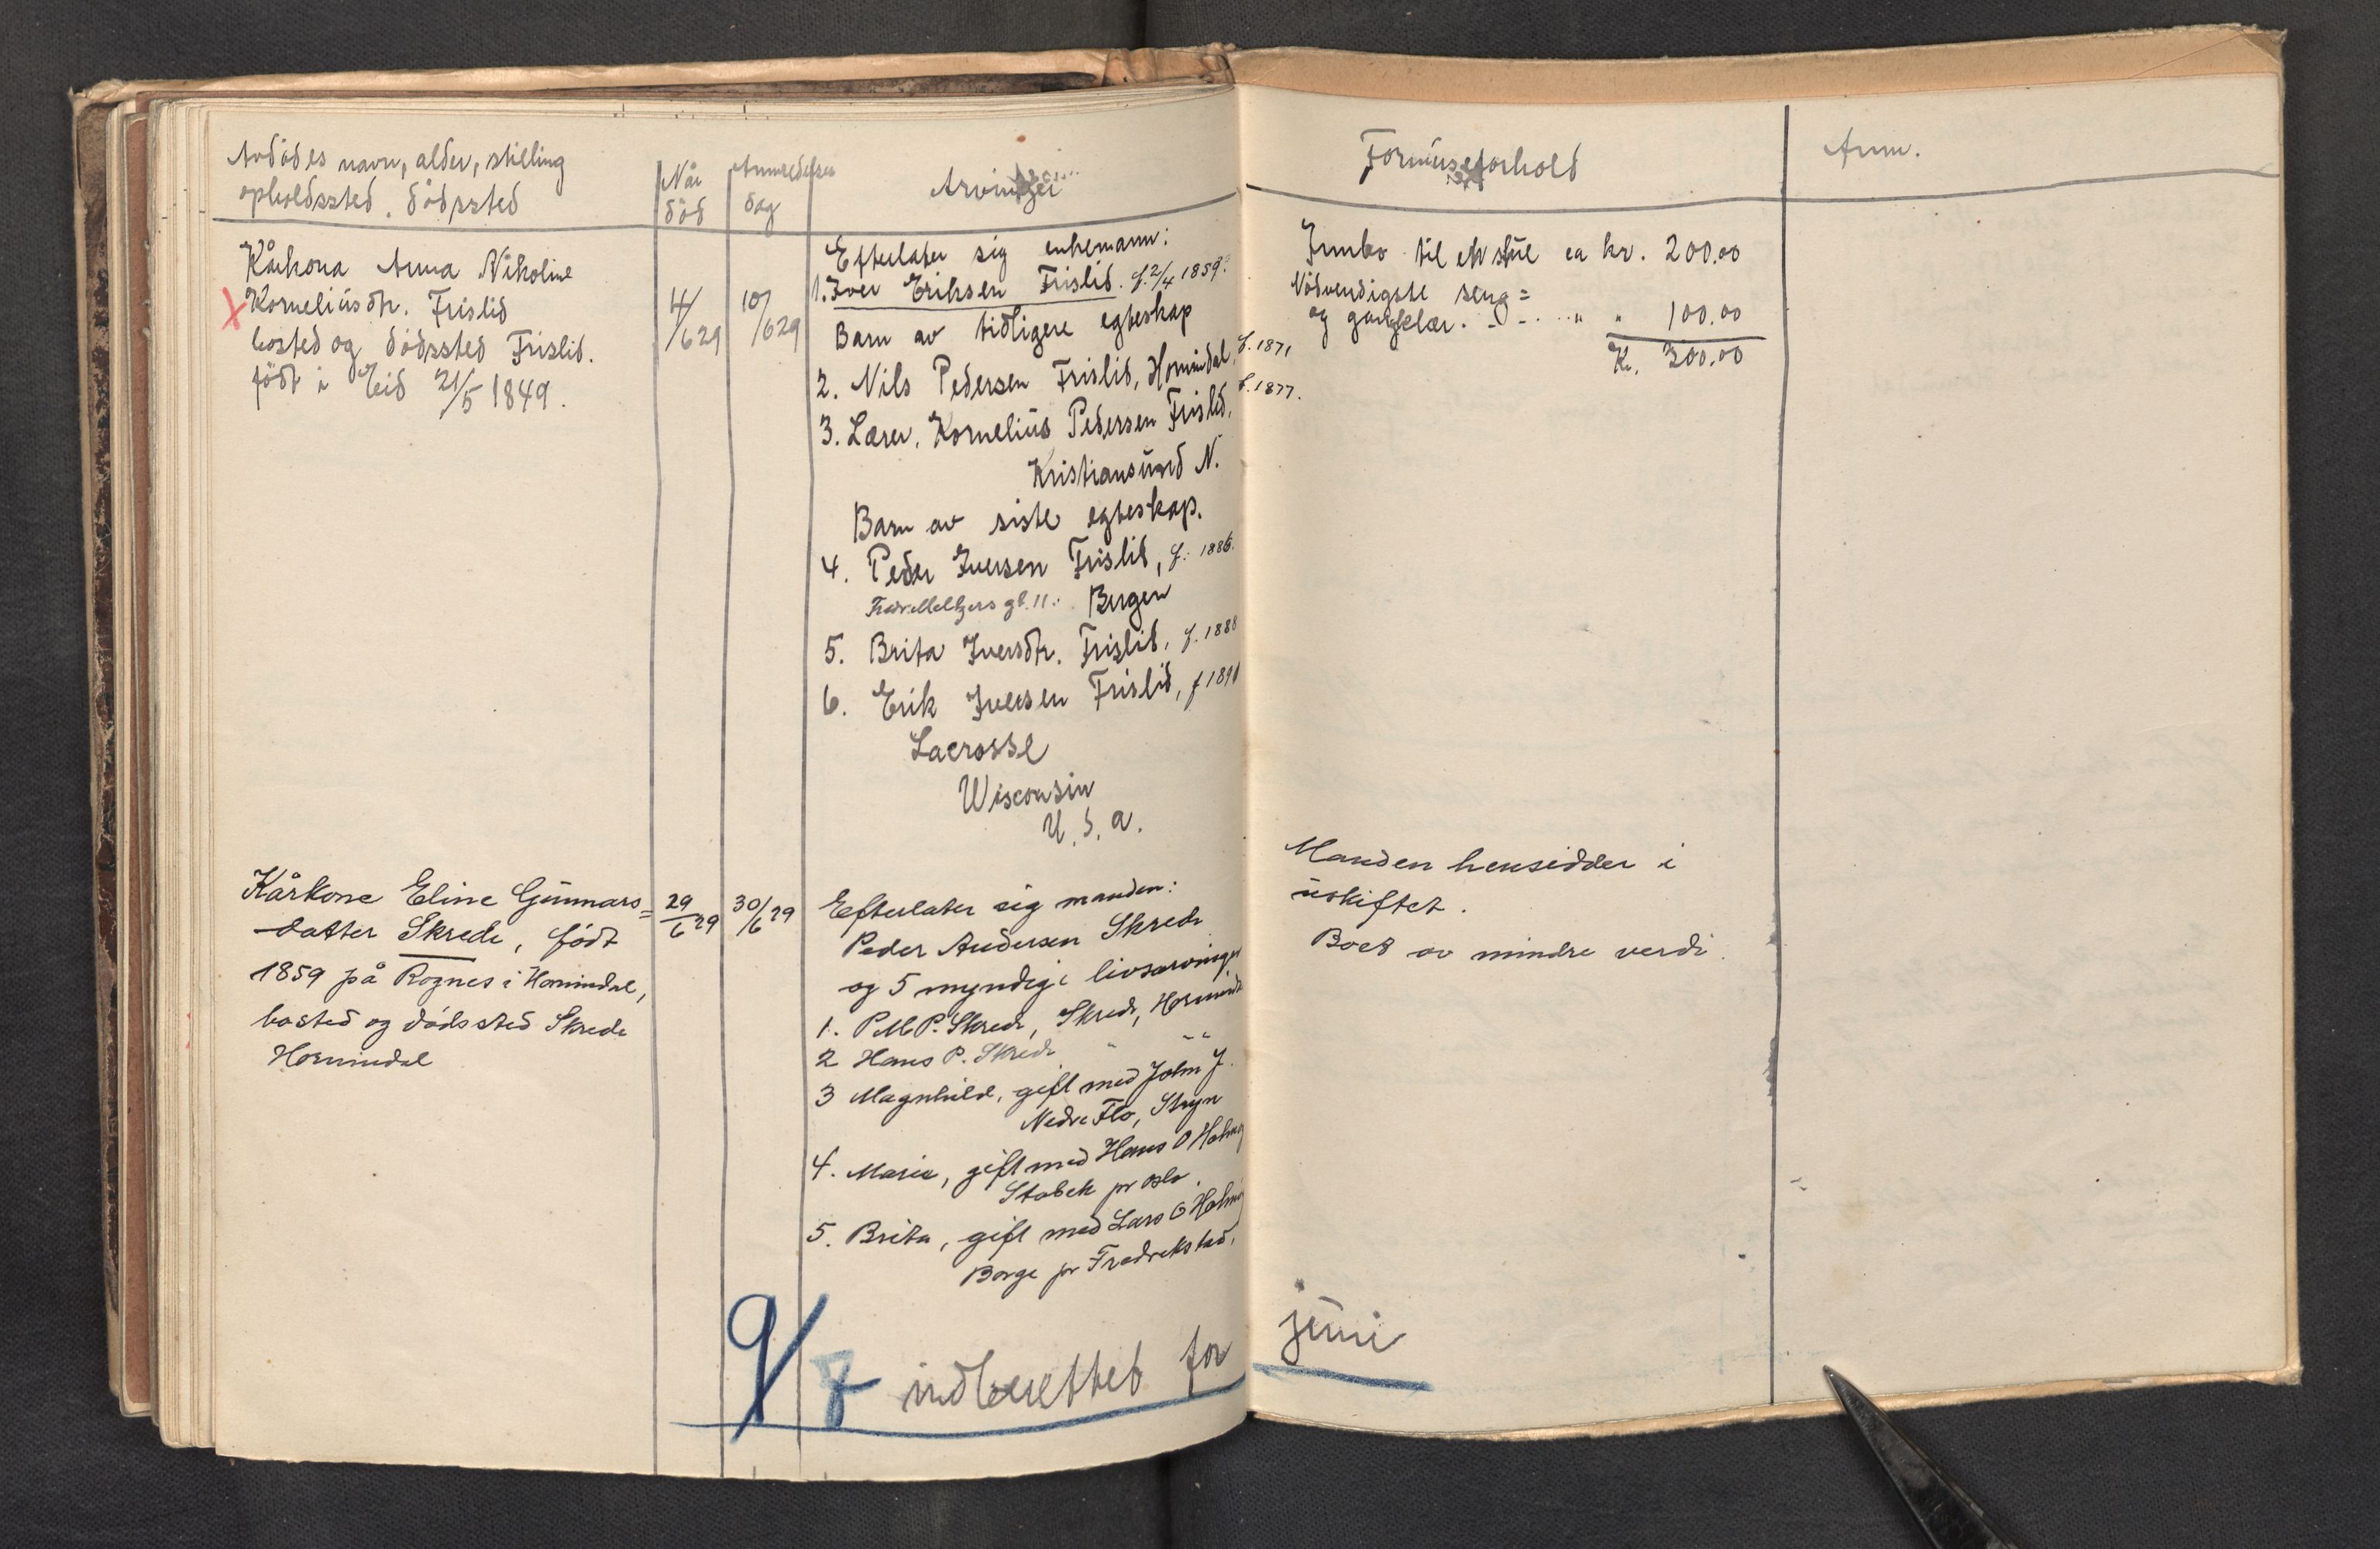 Avdødes navn, alder, stilling
opholdssted, dødssted
Når
død
Anmeldelses
dag
Arvinger
Formuesforhold
Anm.
Kårkona Anna Nikoline
Korneliusdtr. Frislid
bosted og dødssted Frislid.
født i Eid 21/5 1849.
4/6 29
10/6 29
Efterlater sig enkemann:
1. Iver Eriksen Frislid. f. 2/4 1859.
Barn av tidligere egteskap
2. Nils Pedersen Frislid, Hornindal, f. 1871
3. Lærer, Kornelius Pedersen Frislid, f. 1877.
Kristiansund N.
Barn av siste egteskap.
4. Peder Iversen Frislid, f. 1886.
gt. 11. Bergen
5. Brita Iversdtr. Frislid, f. 1888
6. Erik Iversen Frislid, f 1891
Lacrosse
Wisconsin
U. S. A.
Innbo til en stue ca kr. 200.00
Nødvendigste seng=
og gangklær. - - . . " " 100.00
Kr. 300.00
Kårkone Eline Gunnars=
datter Skrede, født
1859 på Rognes i Hornindal,
bosted og dødssted Skrede
Hornindal
29/6 29
30/6 29
Efterlater sig manden:
Peder Andersen Skrede
og 5 myndige livsarvinger
1. P. M. P. Skrede, Skrede, Hornindal
2 Hans P. Skrede " " "
3 Magnhild, gift med John J.
Nedre Flo, Stryn
4. Marie, gift med Hans O Holmøy
Stabek pr Oslo.
5. Brita, gift med Lars O Holmøy
Borge pr Fredrikstad.
Manden hensidder i
uskiftet.
Boet av mindre verdi.
9/8 indberettet for juni